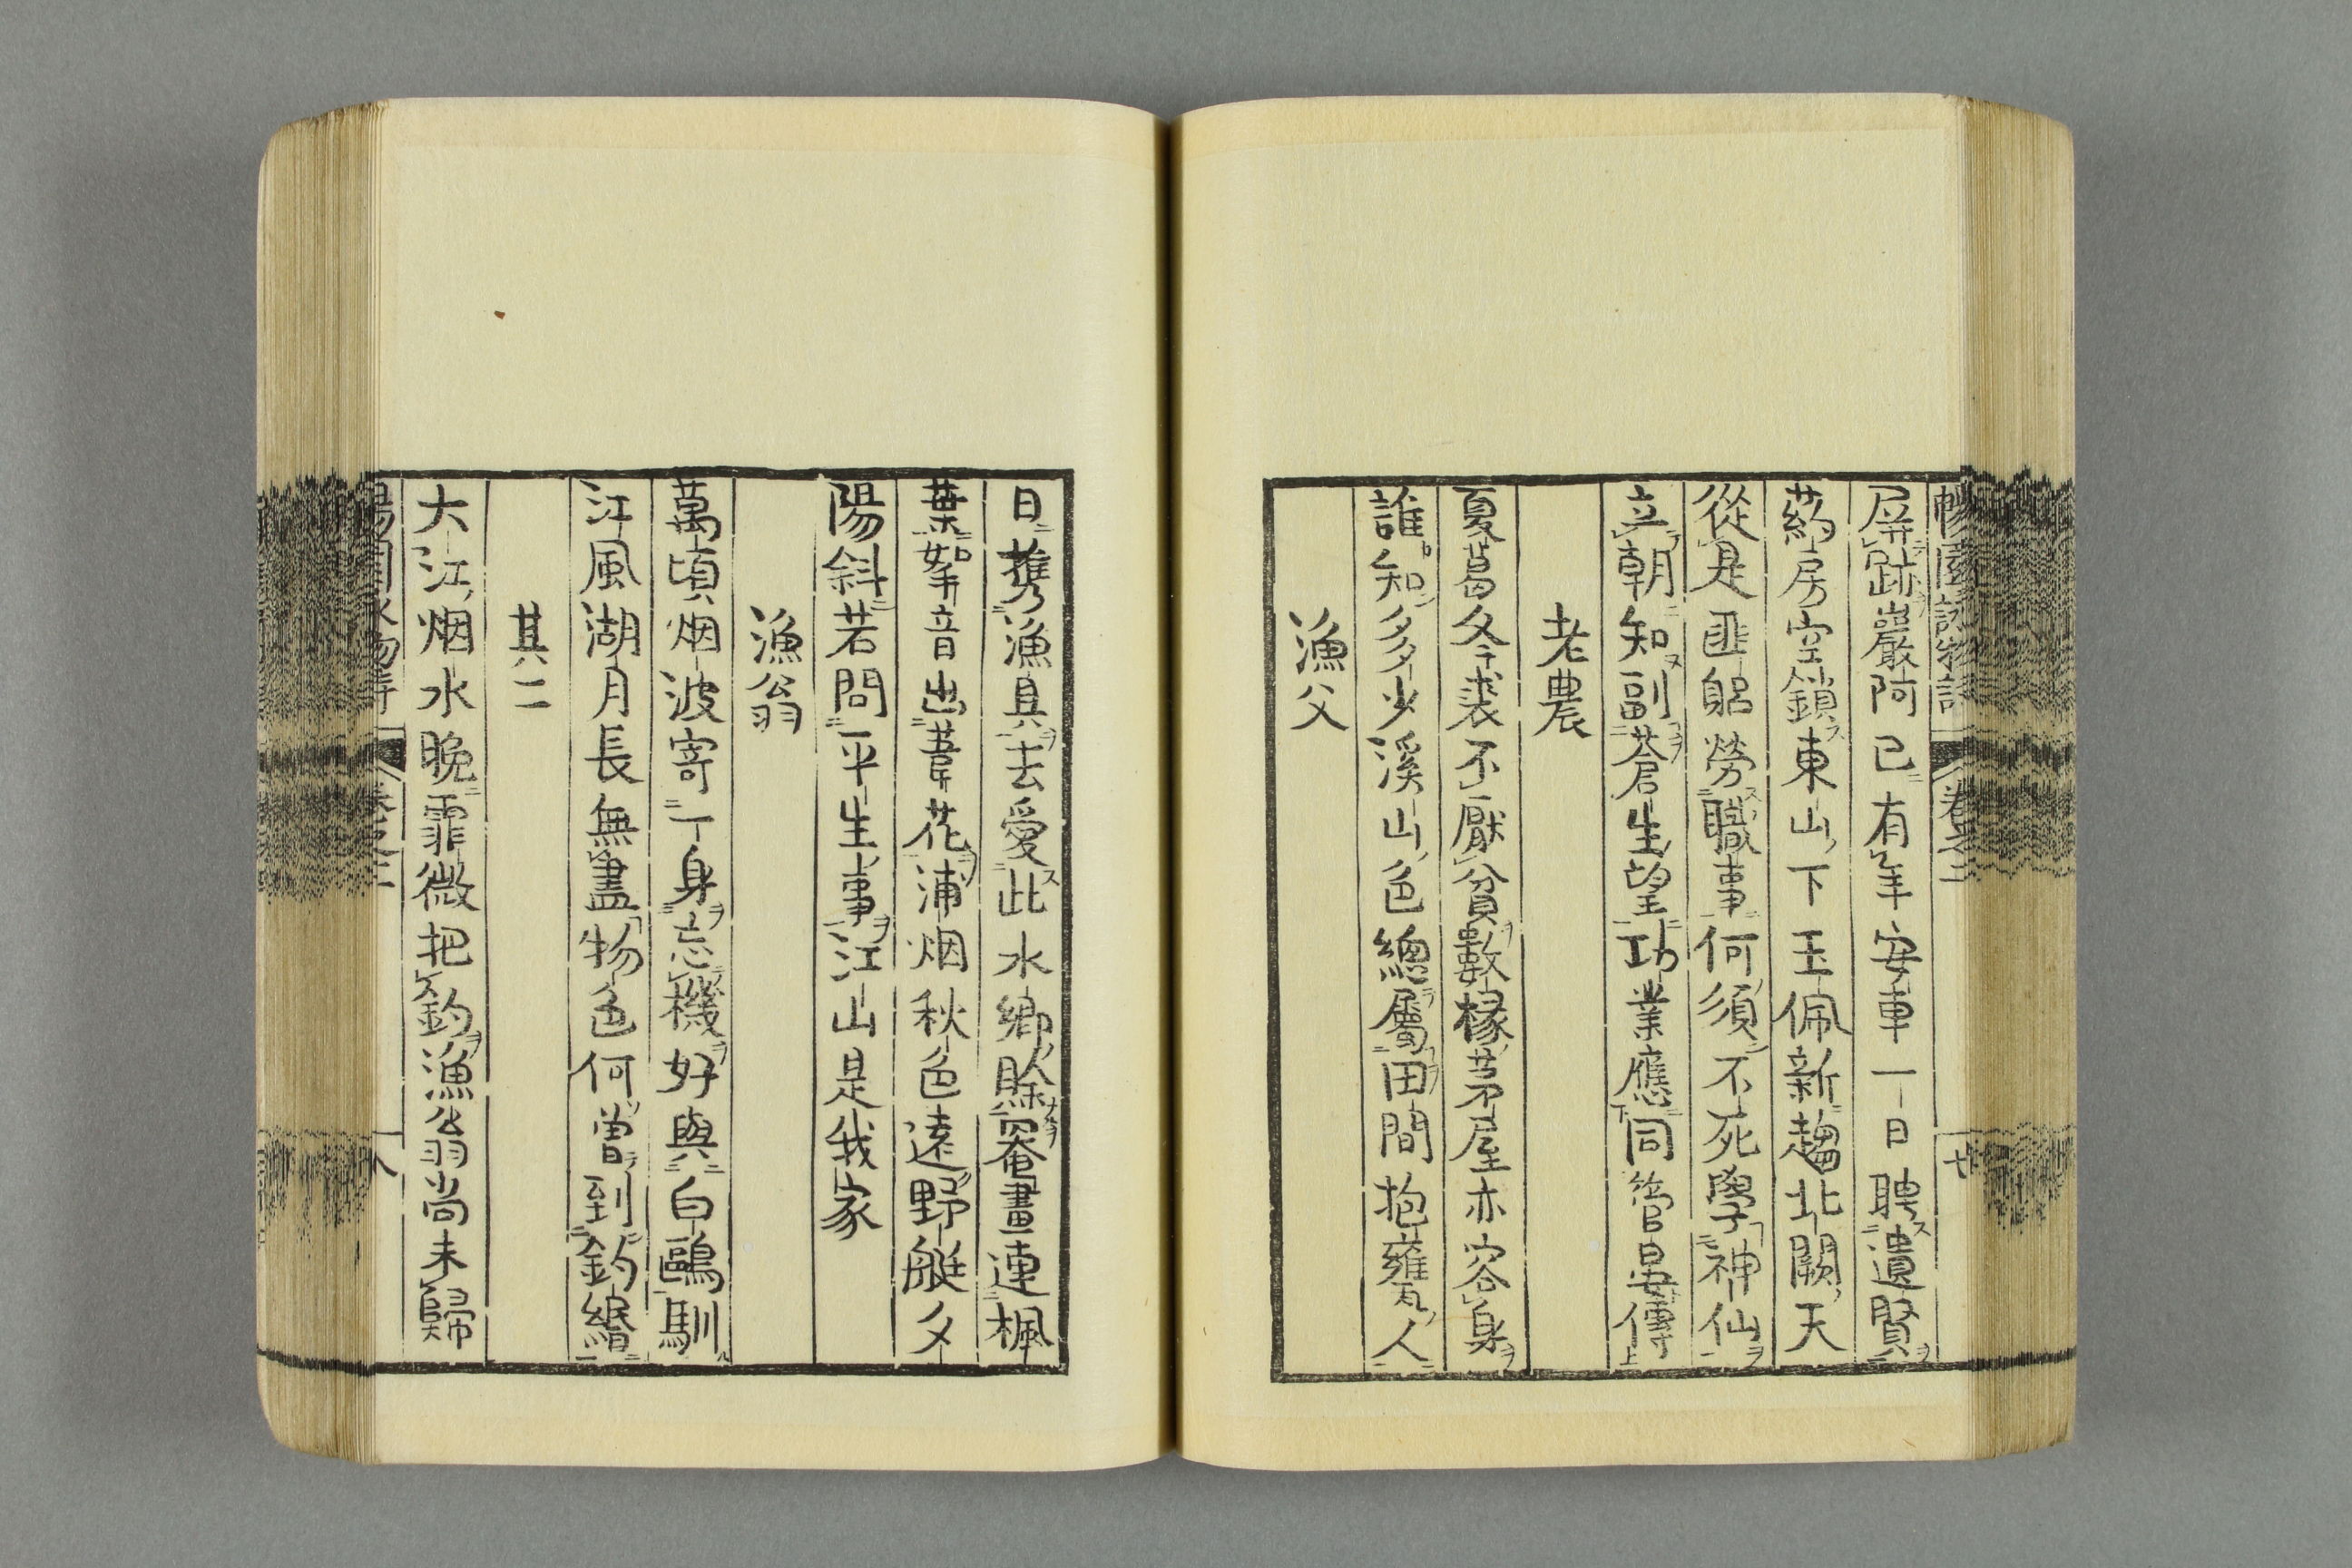 屏跡巖阿已有年安車一日聘遺賢
葯房空鎖東山下玉佩新趨北闕天
從是匪躬勞職事何須不死學神仙
立朝知副蒼生望功業應同管晏傳
老農
夏葛冬裘不厭貧數椽茅屋亦容身
誰知多少溪山色總屬田間抱甕人
漁父
日携漁具去愛此水鄉賖罨畫連楓
葉挐音出葦花浦烟秋色遠野艇夕
陽斜若問平生事江山是我家
漁翁
萬頃烟波寄一身忘機好與白鷗馴
江風湖月長無盡物色何曽到釣緡
其二
大江烟水晚霏微把釣漁翁尚未歸